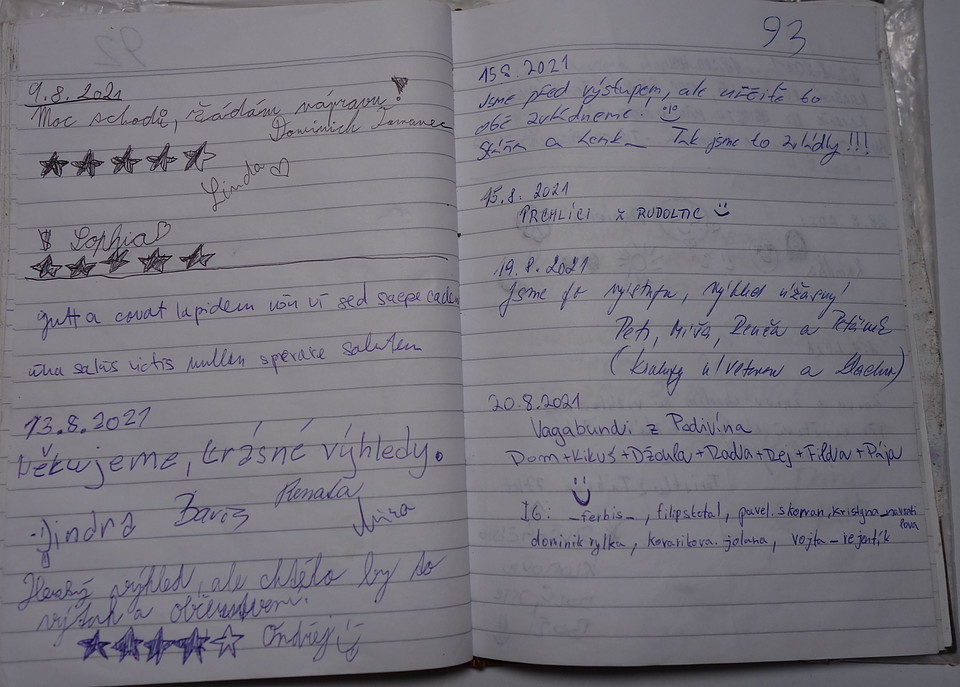 9.8.2021
Moc schodů, žádám nápravu!
Dominich Tomanec
Linda ♡
Sophia ♡
gutta cavat lapidem non vi sed saepe caden
una salus victis nullam sperare salutem
13.8.2021
Děkujeme, krásné výhledy.
Jindra Renata
Hezký výhled, ale chtělo by to
výtah a občerstvení!
Ondřej
93
15.8.2021
Jsme před výstupem, ale určitě to
obě zvládneme!
a Lenka Tak jsme to zvládly!!!
15.8.2021
PRCHLÍCI z RUDOLTIC
19.8.2021
Jsme po výstupu, výhled úžasný!
Petr, Míša, Zenča a
(Kralupy n/Vltavou a
20.8.2021
Vagabundi z Podivína
Dom+Kikuš+Džoula+Radva+Rej+Filda+Pája
IG: _ferbis_, filipstotal, pavel.skoman, kristyna_navrati
lova
dominikrylka, kovarikova.jolana, vojta_rejentik